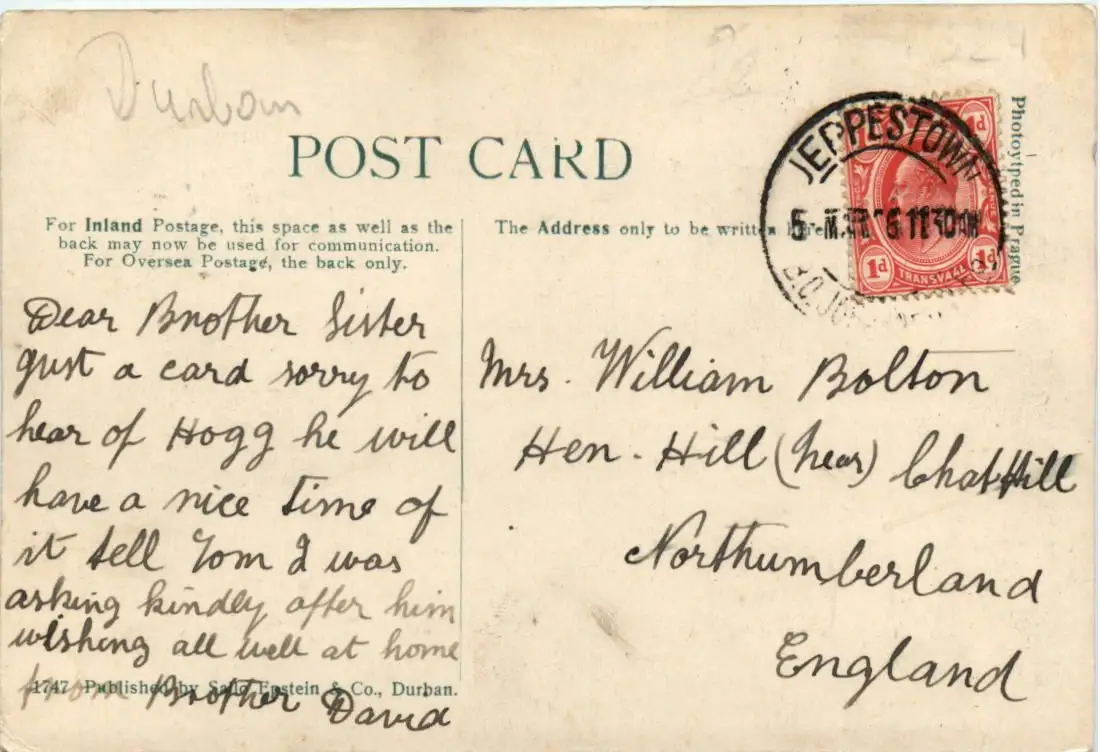 Durban
POST CARD
Phototyped in Prague
JEPPESTOWN
1d 1d
TRANSVAAL
For Inland Postage, this space as well as the
back may now be used for communication.
For Oversea Postage, the back only.
The Address only to be written here.
Dear Brother Sister
gust a card sorry to
hear of Hogg he will
have a nice time of
it tell Tom I was
asking kindly after him
wishing all well at home
from Brother David
Mrs. William Bolton
Hen-Hill (near) Chathill
Northumberland
England
1747 Published by Sallo Epstein & Co., Durban.